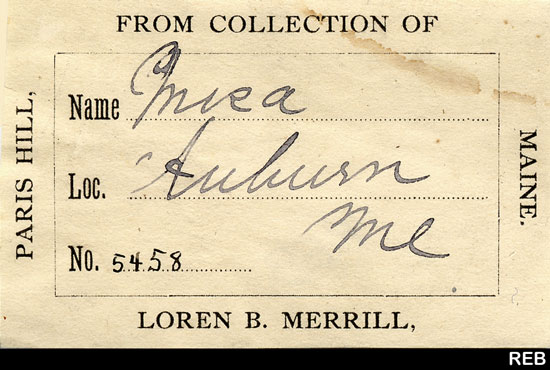 FROM COLLECTION OF
PARIS HILL,
Name Mica
Loc. Auburn
Me
No. 5458
MAINE.
LOREN B. MERRILL,
REB